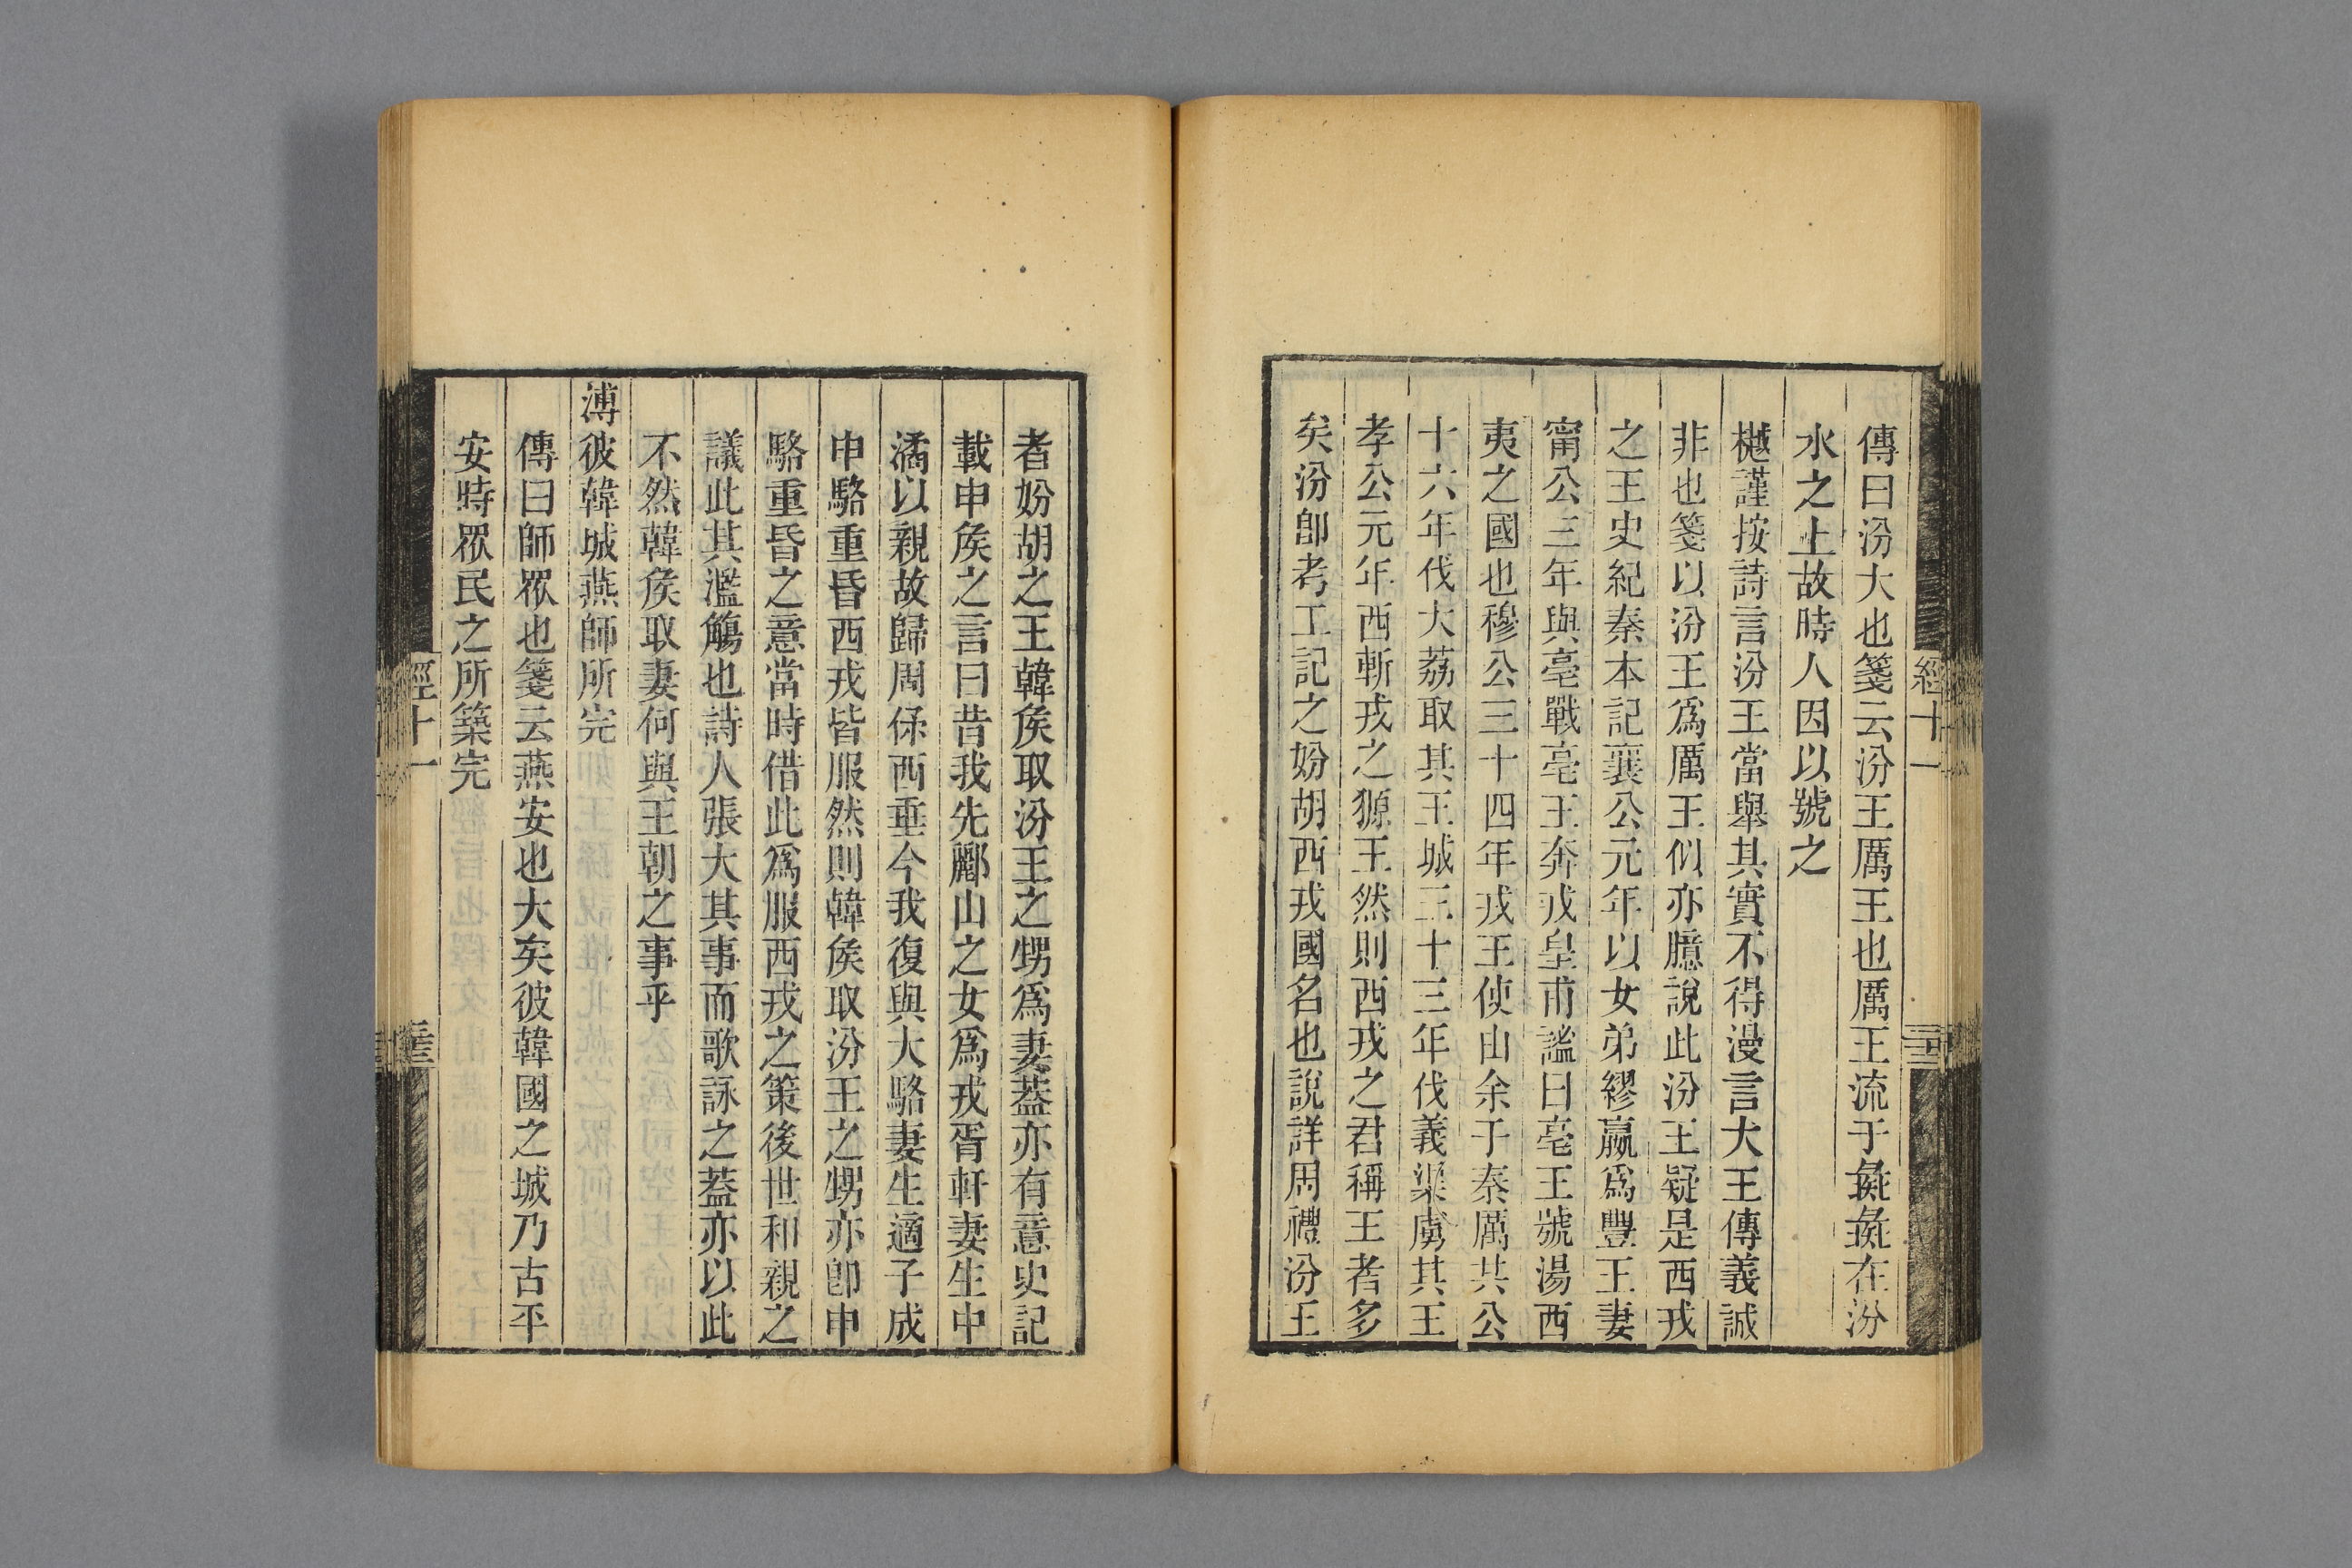 傳曰汾大也箋云汾王厲王也厲王流于彘彘在汾
水之上故時人因以號之
樾謹按詩言汾王當舉其實不得漫言大王傳義誠
非也箋以汾王爲厲王似亦臆說此汾王疑是西戎
之王史紀秦本記襄公元年以女弟繆嬴爲豐王妻
甯公三年與亳戰亳王奔戎皇甫謐曰亳王號湯西
夷之國也穆公三十四年戎王使由余于秦厲共公
十六年伐大荔取其王城三十三年伐義渠虜其王
孝公元年西斬戎之獂王然則西戎之君稱王者多
矣汾卽考工記之妢胡西戎國名也說詳周禮汾王
經十一
者妢胡之王韓矦取汾王之甥爲妻葢亦有意史記
載申矦之言曰昔我先酈山之女爲戎胥軒妻生中
潏以親故歸周保西垂今我復與大駱妻生適子成
申駱重昏西戎皆服然則韓矦取汾王之甥亦卽申
駱重昏之意當時借此爲服西戎之策後世和親之
議此其濫觴也詩人張大其事而歌詠之葢亦以此
不然韓矦取妻何與王朝之事乎
溥彼韓城燕師所完
傳曰師眾也箋云燕安也大矣彼韓國之城乃古平
安時眾民之所築完
經十一